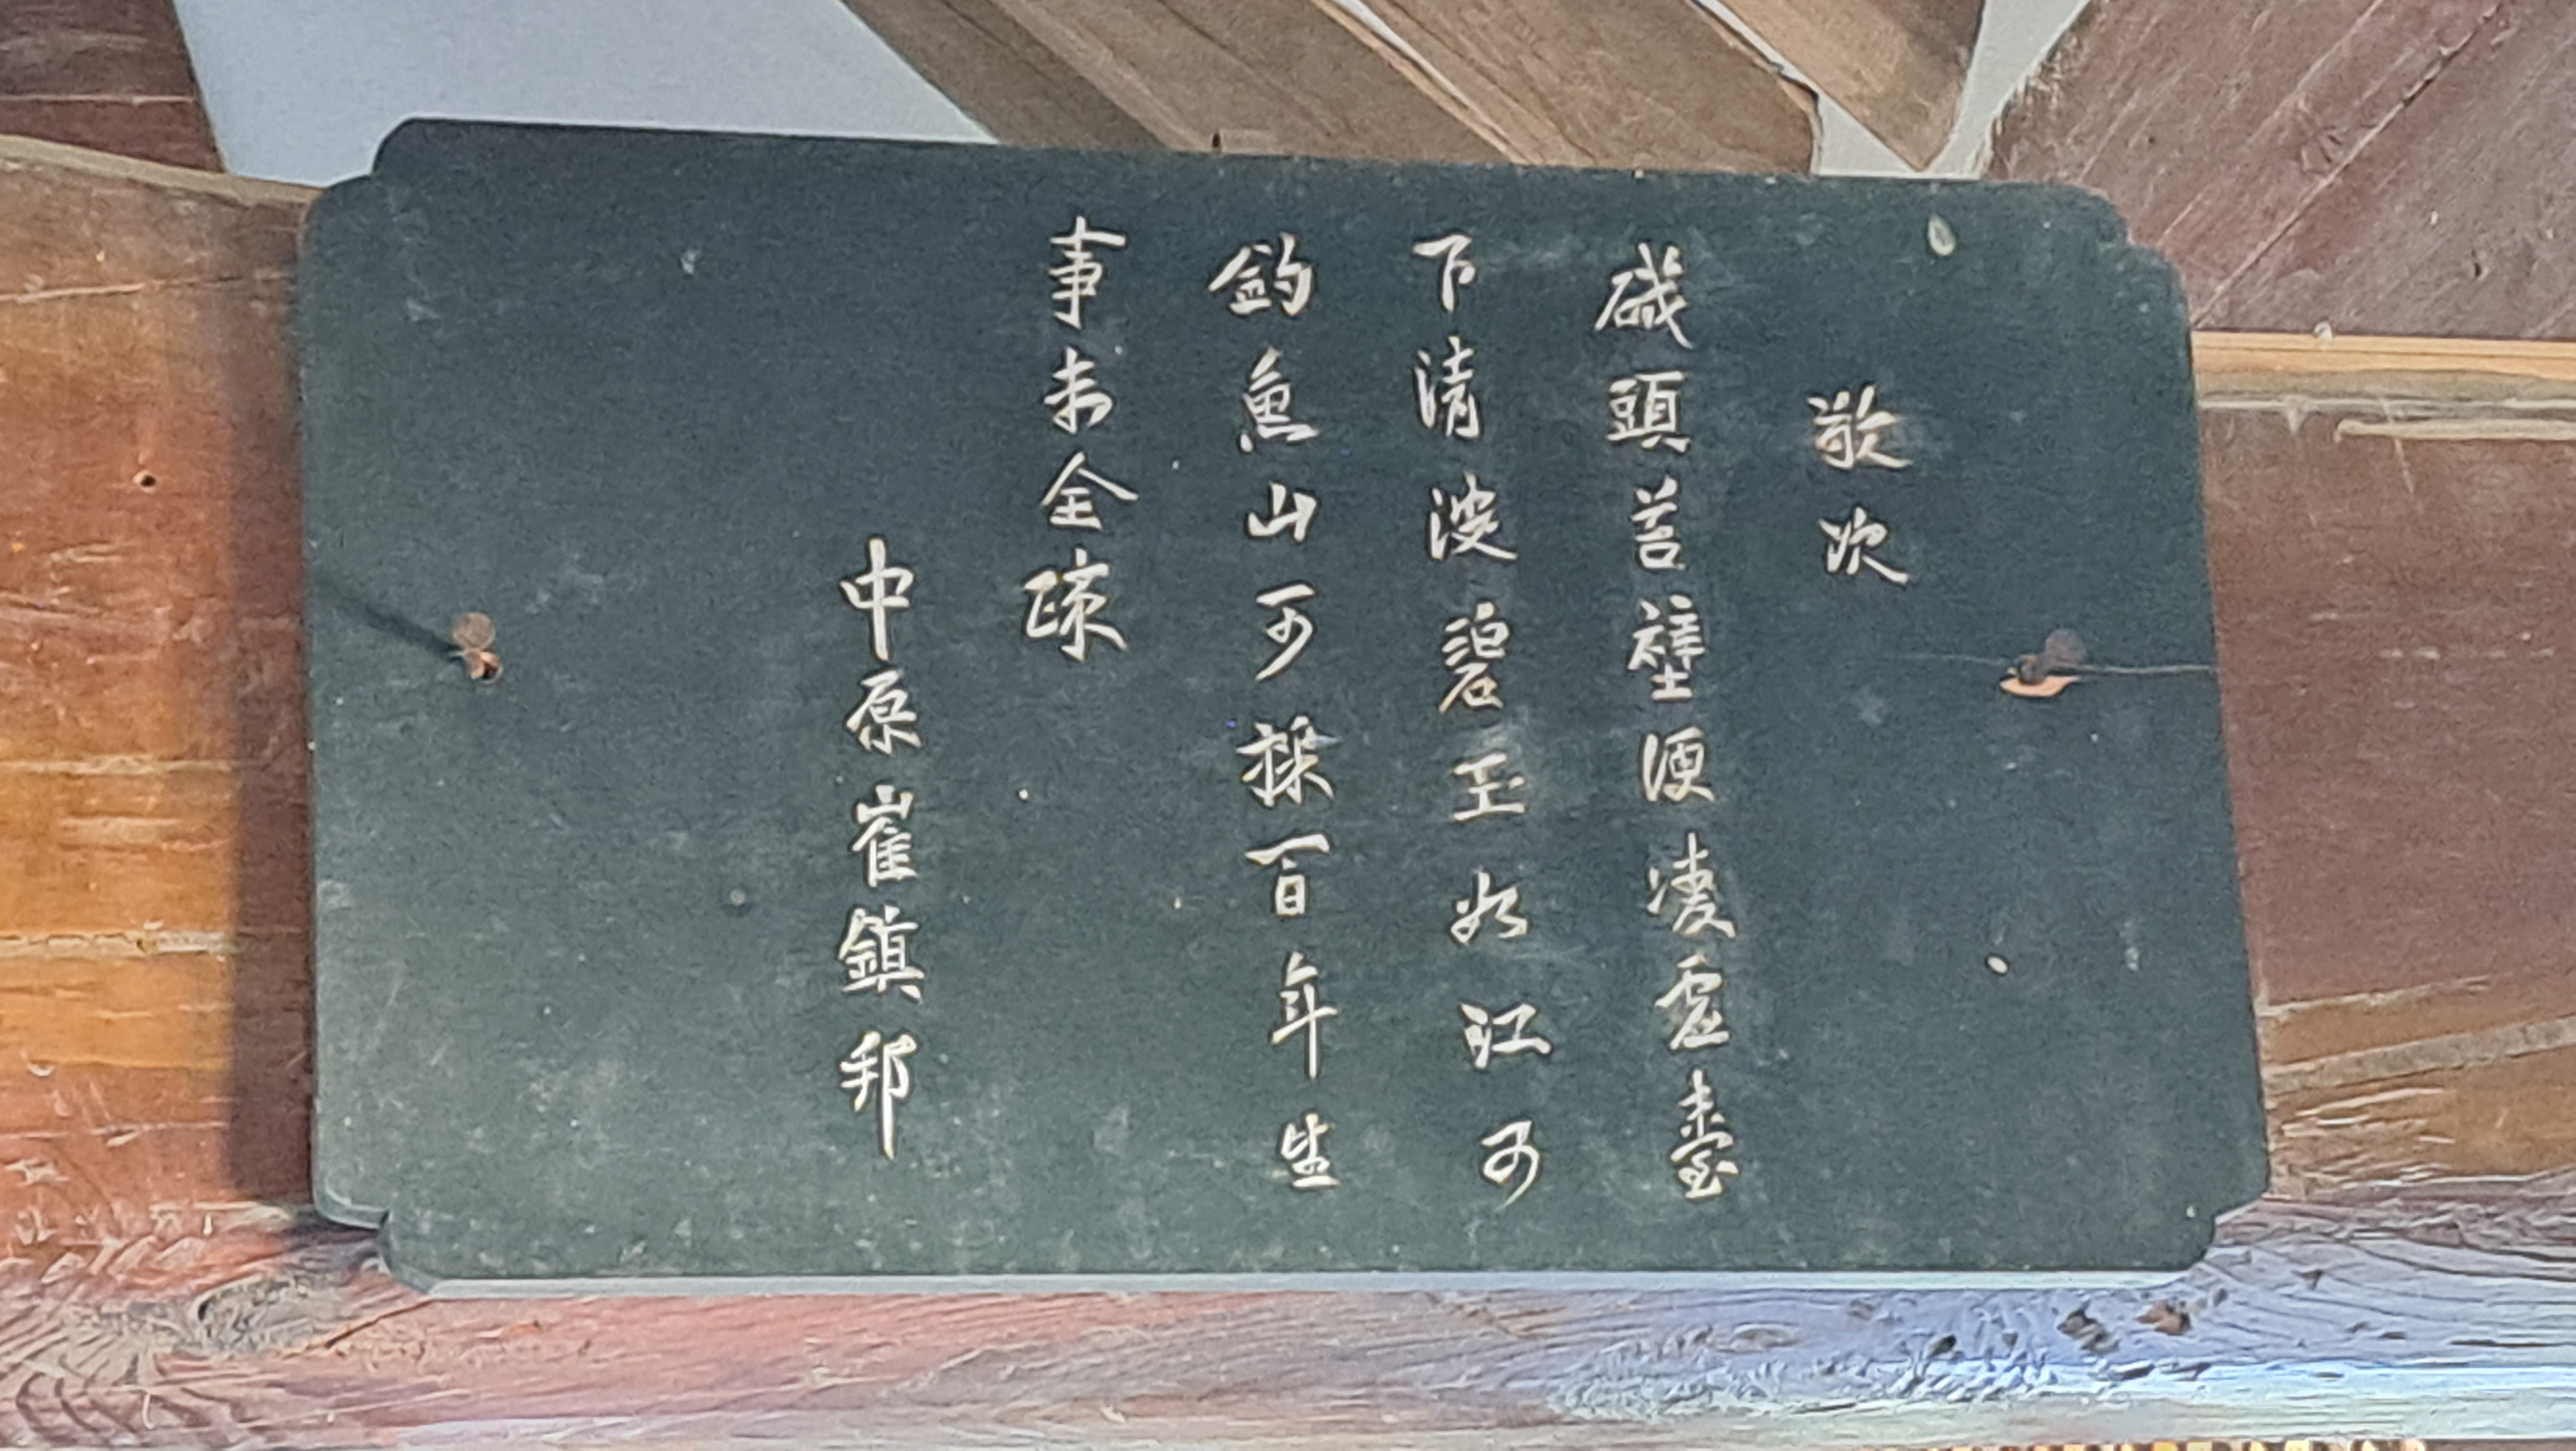 敬次
磯頭苔壁便凌虛臺
下清波碧玉如江可
釣魚山可採百年生
事未全疎
中原崔鎭邦